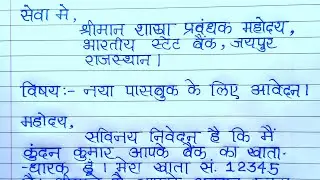 सेवा मे,
श्रीमान शाखा प्रबंधक महोदय,
भारतीय स्टेट बैंक, जयपुर
राजस्थान।
विषय:- नया पासबुक के लिए आवेदन।
महोदय,
सविनय निवेदन है कि मैं
कुंदन कुमार आपके बैंक का खाता-
-धारक हूँ। मेरा खाता सं. 12345